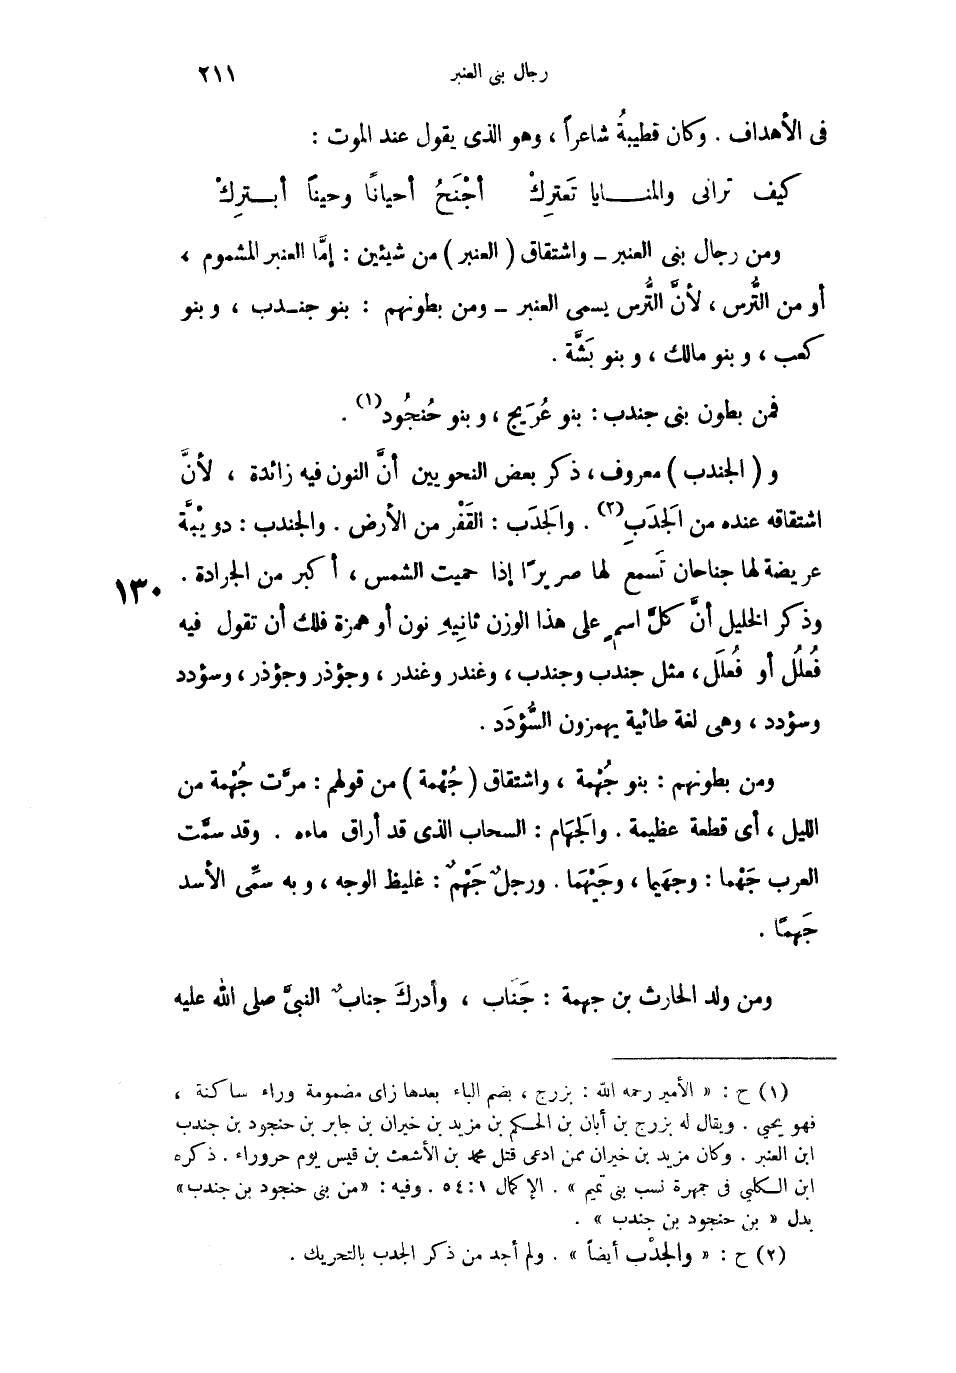 رجال بنى العنبر ٢١١
فى الأهداف . وكان قطيبةُ شاعراً ، وهو الذى يقول عند الموت :
كيف ترانى والمنـــايا تَعتركْ أجْنَحُ أحيانًا وحيناً أبـتركْ
ومن رجال بنى العنبر – واشتقاق ( العنبر ) من شيئين : إمَّا العنبر المشموم ،
أو من التُّرس ، لأنَّ التُّرس يسمى العنبر – ومن بطونهم : بنو جنـدب ، وبنو
كعب ، وبنو مالك ، وبنو بَشَّة .
فمن بطون بنى جندب : بنو عُرَيج ، وبنو حُنجُود(١) .
و ( الجندب ) معروف ، ذكر بعض النحويين أنَّ النون فيه زائدة ، لأنَّ
اشتقاقه عنده من الجَدَبِ(٢) . والجَدَب : القَفْر من الأرض . والجندب : دويْبَّة
عريضة لها جناحان تَسمع لها صريرًا إذا حميت الشمس ، أكبر من الجرادة .
١٣٠
وذكر الخليل أنَّ كلَّ اسمٍ على هذا الوزن ثانيهِ نون أو همزة فلك أن تقول فيه
فُعلُل أو فُعلَل ، مثل جندب وجندب ، وغندر وغندر ، وجؤذر وجؤذر ، وسؤدد
وسؤدد ، وهى لغة طائية يهمزون السُّؤدَد .
ومن بطونهم : بنو جُهْمة ، واشتقاق ( جُهْمة ) من قولهم : مرَّت جُهْمة من
الليل ، أى قطعة عظيمة . والجَهَام : السحاب الذى قد أراق ماءه . وقد سمَّت
العرب جَهْما : وجهَيما ، وجَيْهَما . ورجلٌ جَهْمٌ : غليظ الوجه ، وبه سمِّى الأسد
جَهمًا .
ومن ولد الحارث بن جهمة : جَنَاب ، وأدركَ جنابٌ النبىَّ صلى الله عليه
(١) ح : « الأمير رحمه الله : بزرج ، بضم الباء بعدها زاى مضمومة وراء ساكنة ،
فهو يحيى . ويقال له بزرج بن أبان بن الحكم بن مزيد بن خيران بن جابر بن حنجود بن جندب
ابن العنبر . وكان مزيد بن خيران ممن ادعى قتل محمد بن الأشعث بن قيس يوم حروراء . ذكره
ابن الكلبي فى جمهرة نسب بنى تميم » . الإكمال ١ : ٥٤ . وفيه : «من بنى حنجود بن جندب»
بدل « بن حنجود بن جندب » .
(٢) ح : « والجدْب أيضاً » . ولم أجد من ذكر الجدب بالتحريك .